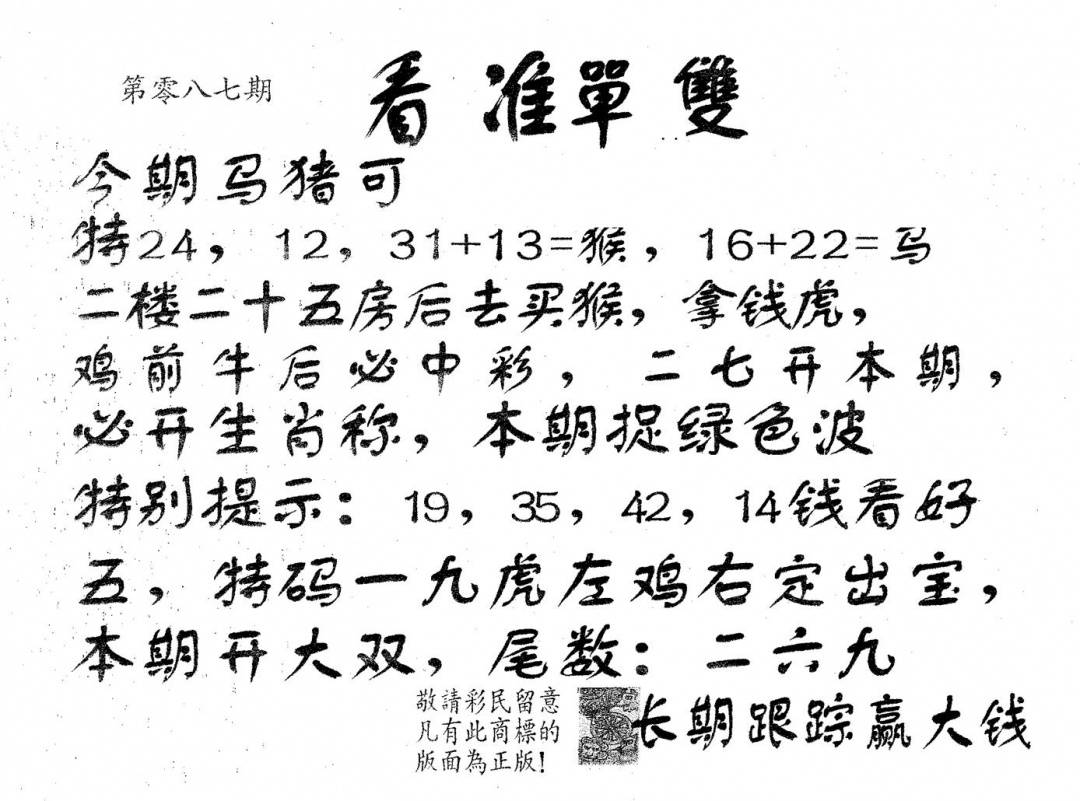 第零八七期
看准單雙
今期马猪可
特24，12，31+13=猴，16+22=马
二楼二十五房后去买猴，拿钱虎，
鸡前牛后必中彩，二七开本期，
必开生肖称，本期捉绿色波
特别提示：19，35，42，14钱看好
五，特码一九虎左鸡右定出宝，
本期开大双，尾数：二六九
敬請彩民留意
凡有此商標的
版面為正版！
长期跟踪赢大钱